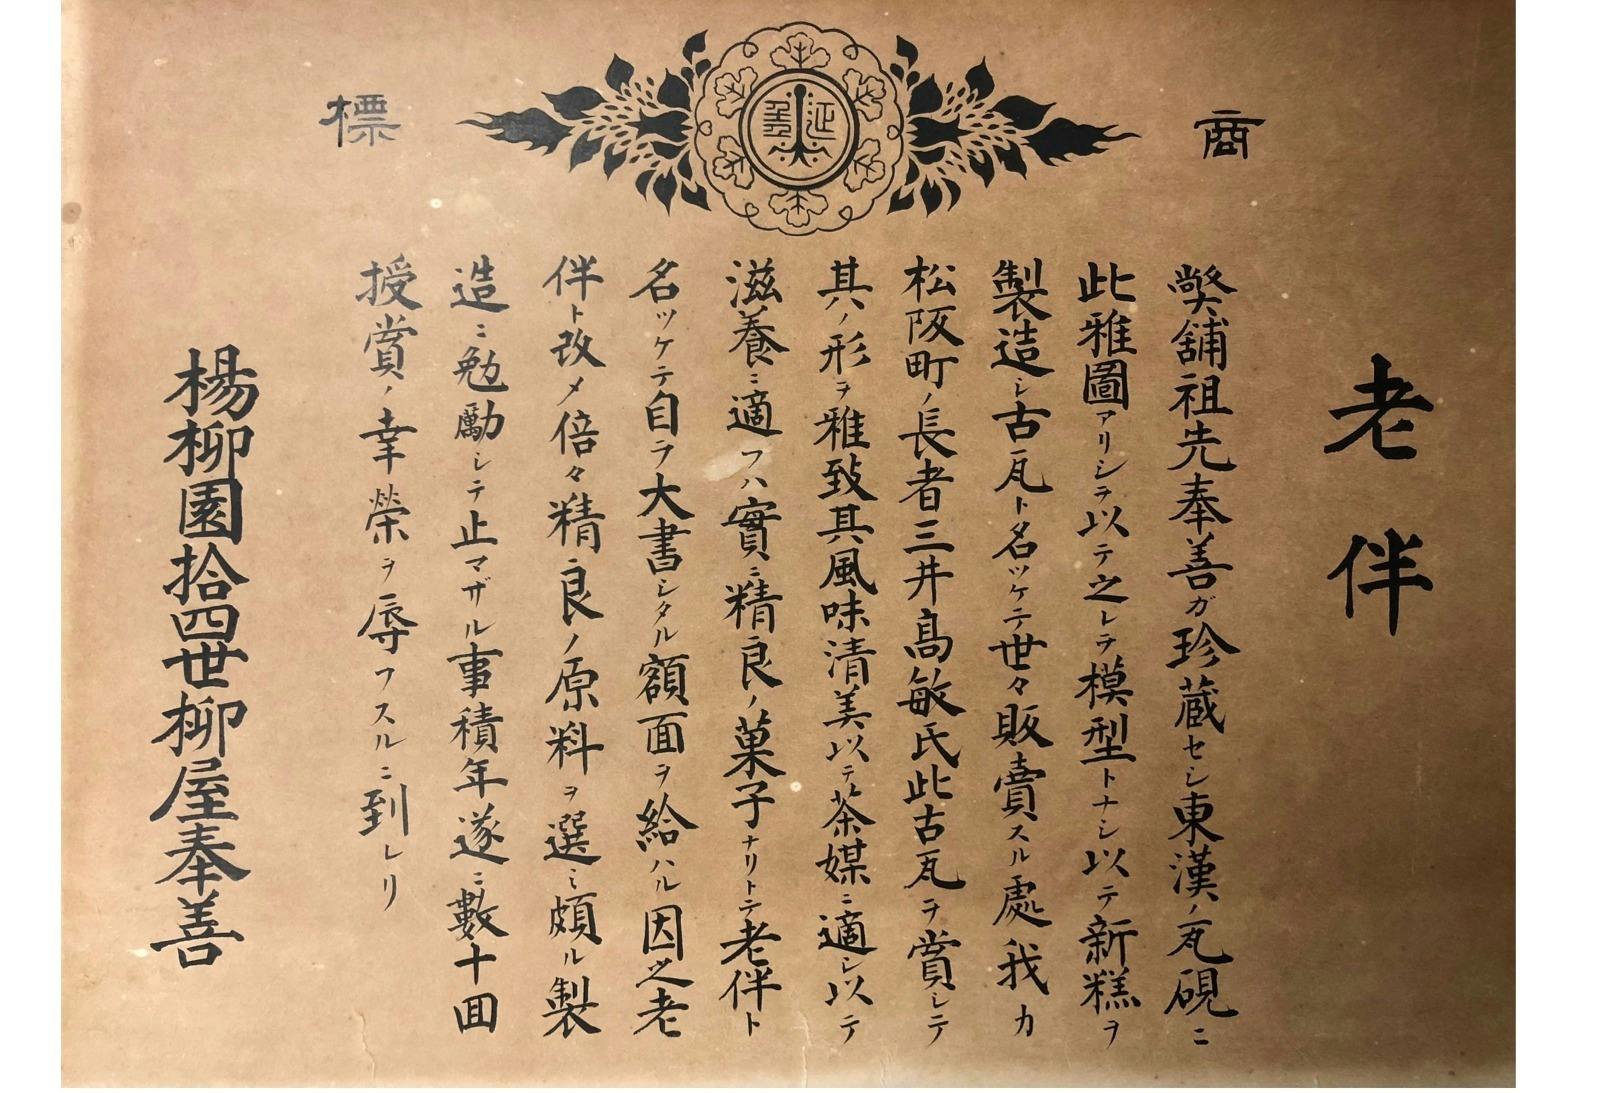 商標
延年
老伴
弊舗祖先奉善ガ珍蔵セシ東漢ノ瓦硯ニ
此雅圖アリシヲ以テ之レヲ模型トナシ以テ新糕ヲ
製造シ古瓦ト名ツケテ世々販賣スル處我カ
松阪町ノ長者三井高敏氏此古瓦ヲ賞シテ
其ノ形ヲ雅致其風味清美以テ茶媒ニ適シ以テ
滋養ニ適フハ實ニ精良ノ菓子ナリトテ老伴ト
名ツケテ自ラ大書シタル額面ヲ給ハル因之老
伴ト改メ倍々精良ノ原料ヲ選ミ頗ル製
造ニ勉勵シテ止マザル事積年遂ニ數十回
授賞ノ幸榮ヲ辱フスルニ到レリ
楊柳園拾四世柳屋奉善